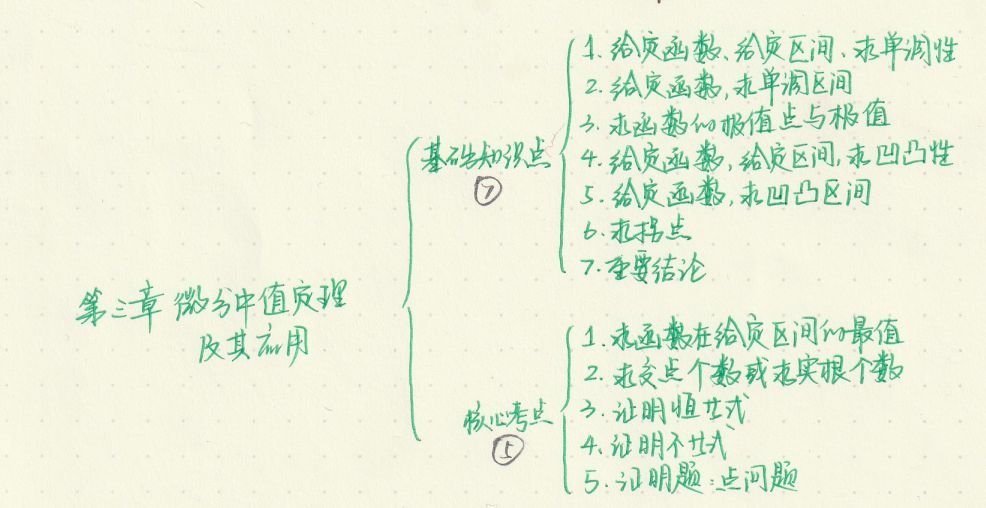 第三章 微分中值定理
及其应用
基础知识点
⑦
1. 给定函数、给定区间、求单调性
2. 给定函数,求单调区间
3. 求函数的极值点与极值
4. 给定函数,给定区间,求凹凸性
5. 给定函数,求凹凸区间
6. 求拐点
7. 重要结论
核心考点
⑤
1. 求函数在给定区间的最值
2. 求交点个数或求实根个数
3. 证明恒廿式
4. 证明不廿式
5. 证明题:点问题